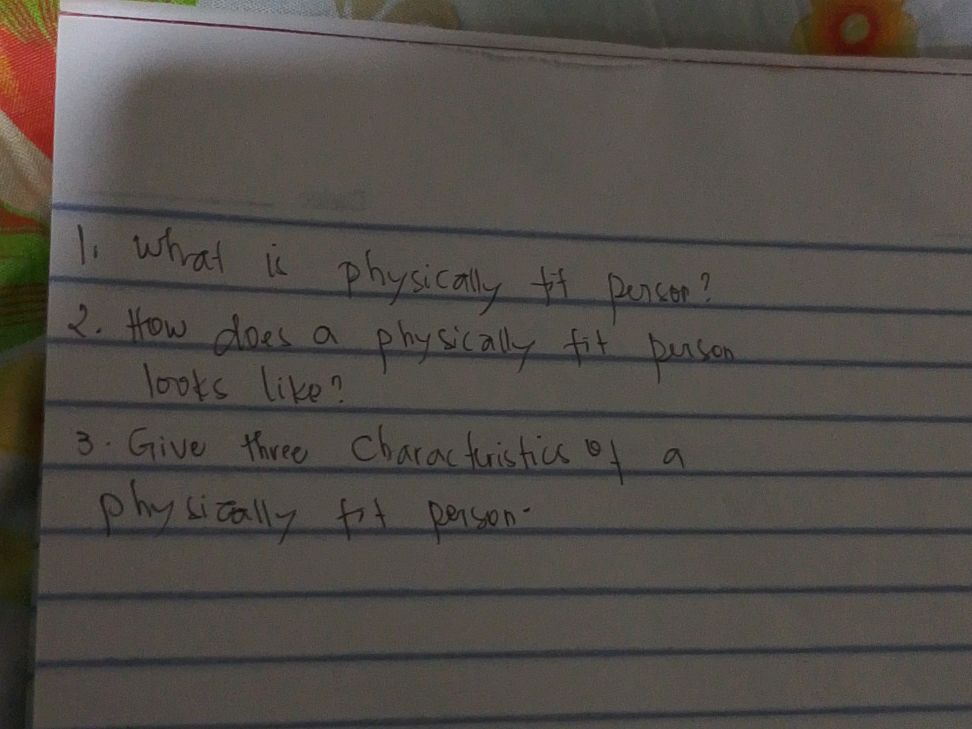 1. What is physically fit person?
2. How does a physically fit person
looks like?
3. Give three characteristics of a
physically fit person.